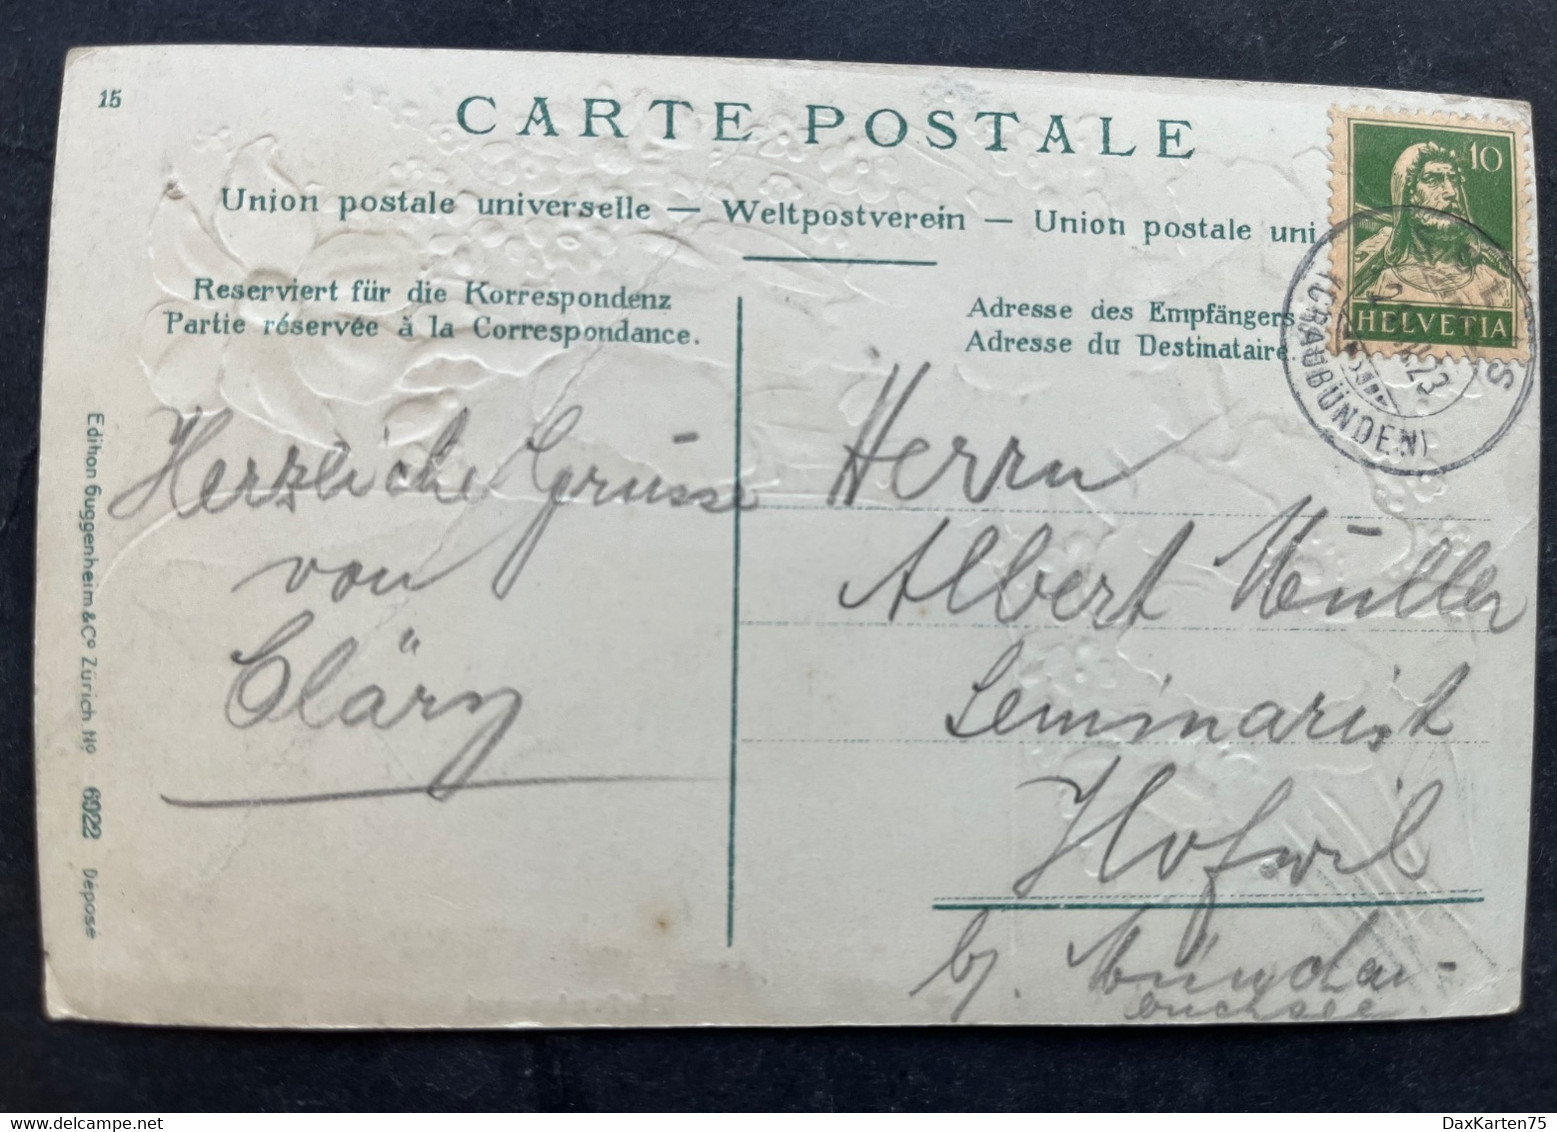 15
CARTE POSTALE
Union postale universelle — Weltpostverein — Union postale uni
Reserviert für die Korrespondenz
Partie réservée à la Correspondance.
Adresse des Empfängers
Adresse du Destinataire.
10
HELVETIA
(GRAUBÜNDEN)
23
Herzliche Grüsse
von
Cläry
Herrn
Albert Müller
Seminarist
Hofwil
b/. München-
buchsee
Edition Guggenheim & Cº Zürich Nº 6022 Déposé
DaxKarten75